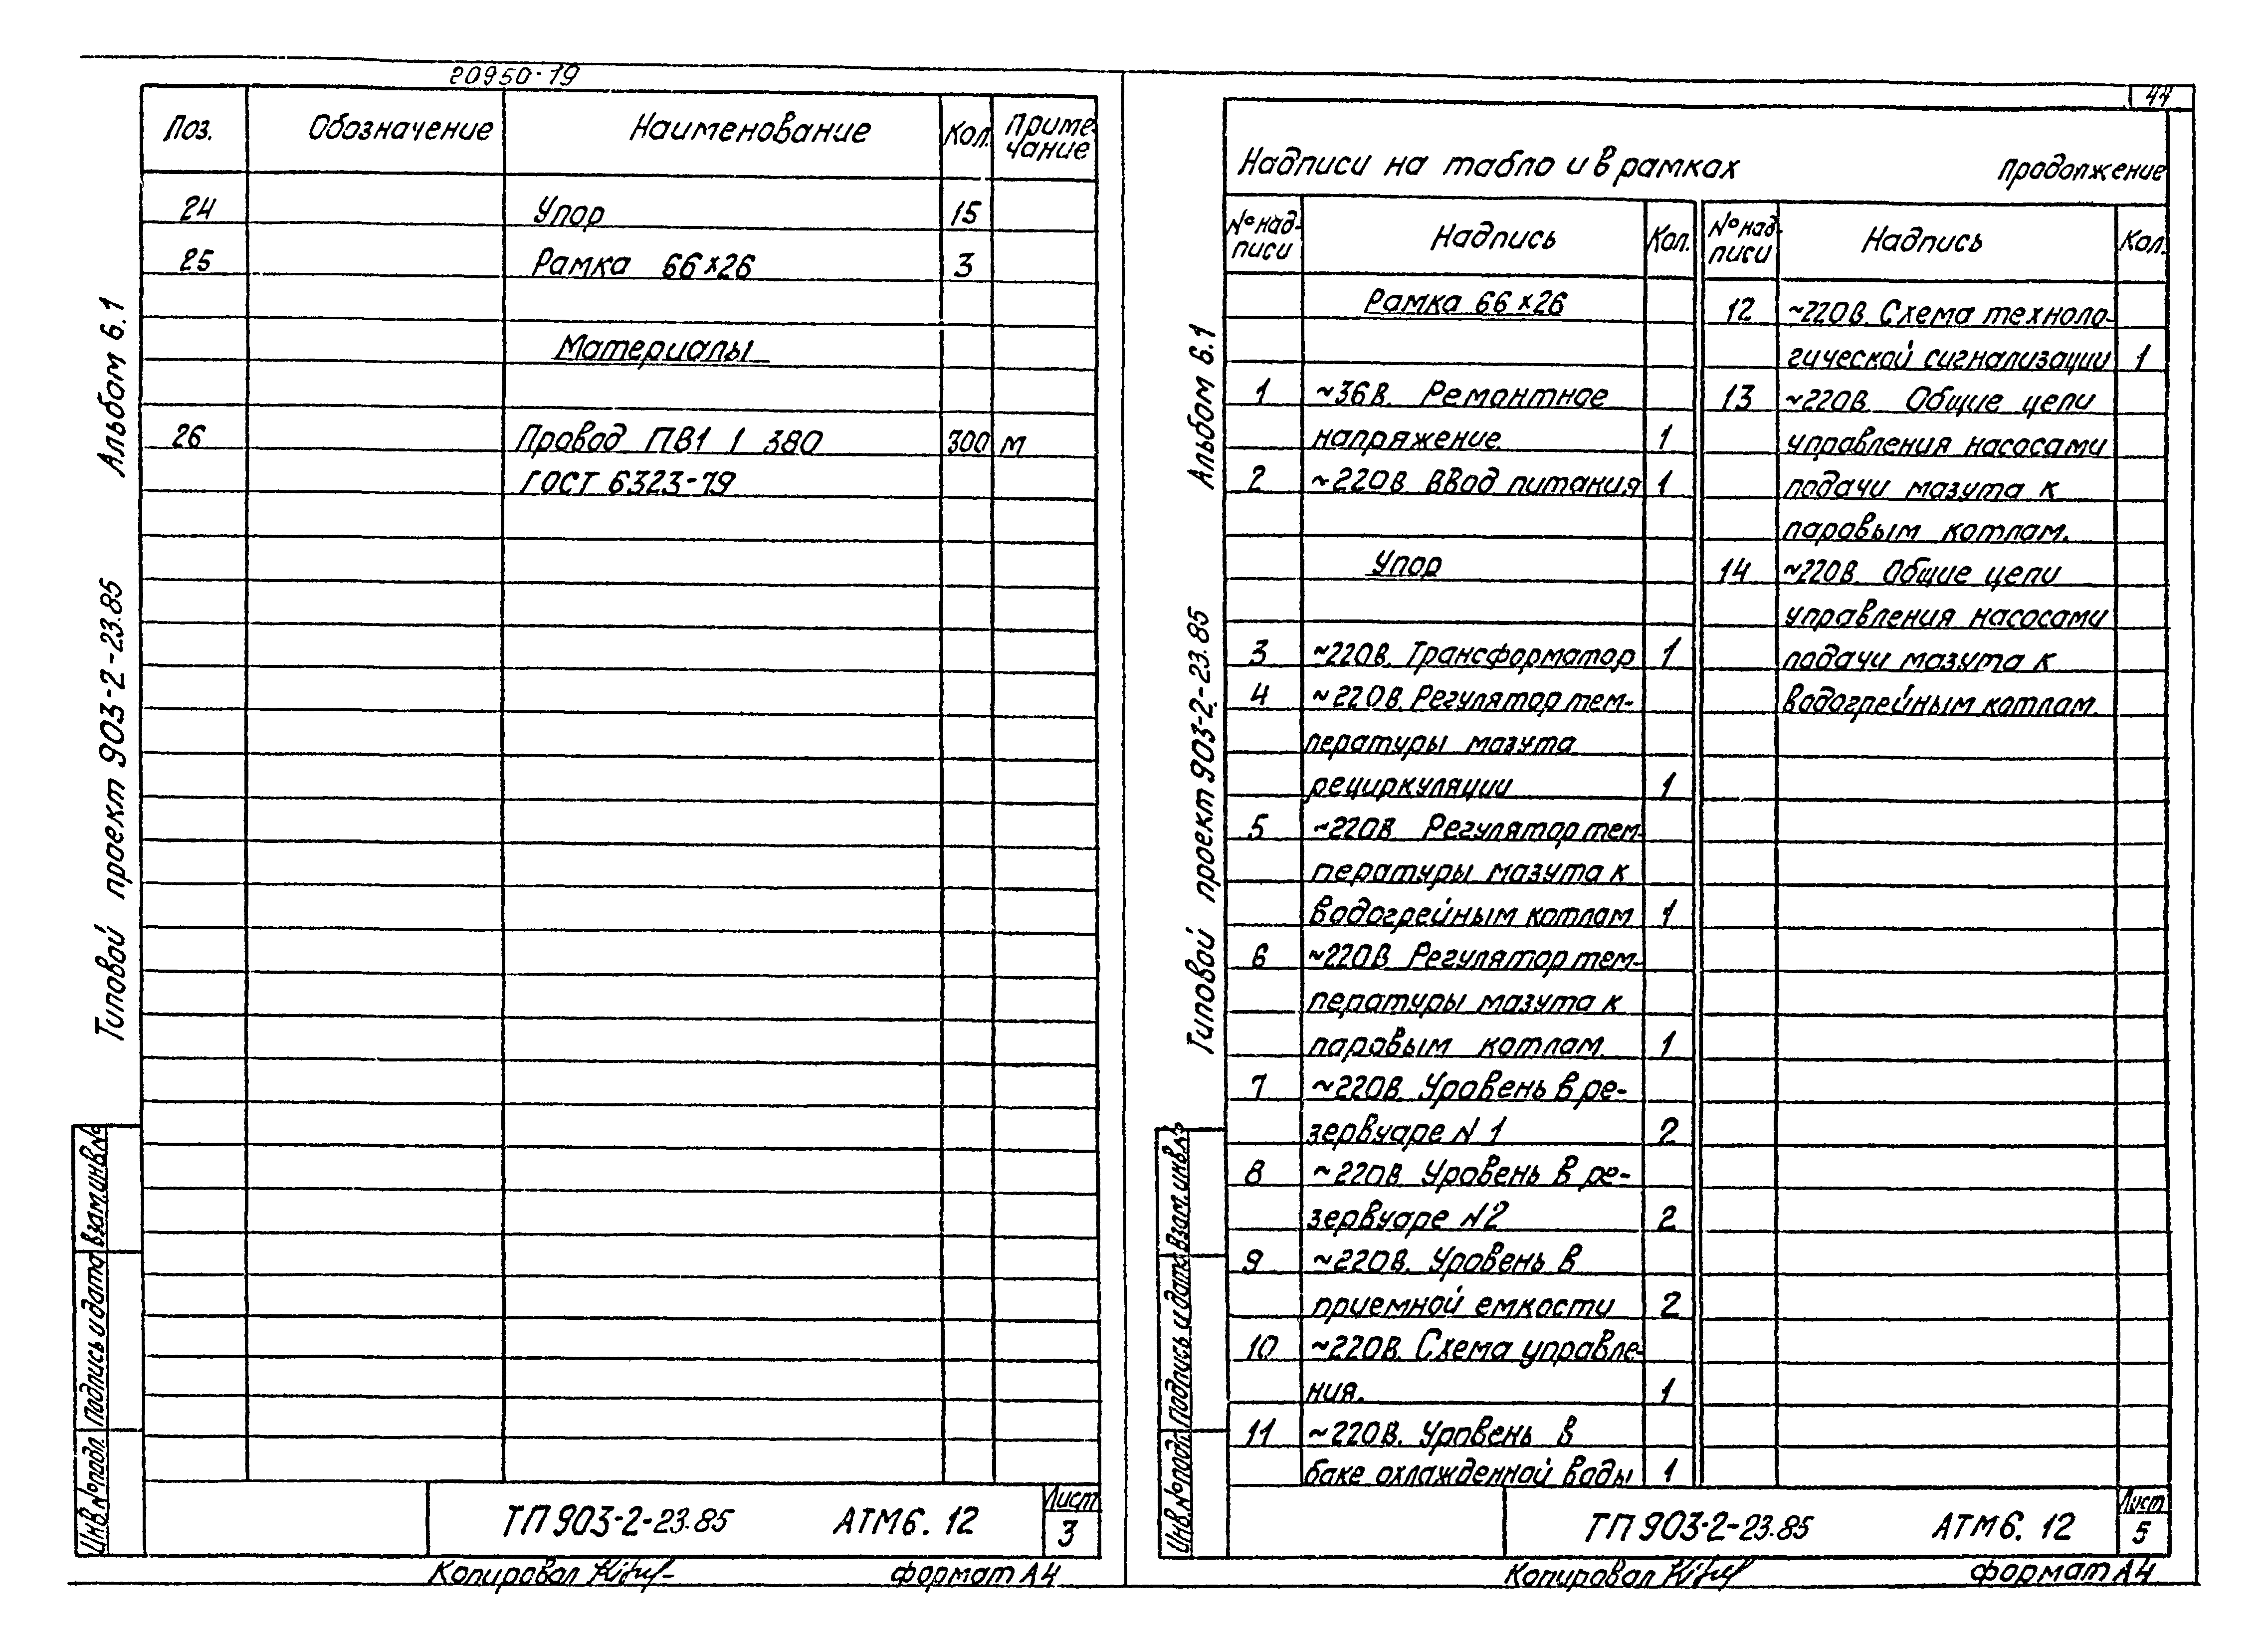 20950-19
Поз. Обозначение Наименование Кол. Приме-
чание
24 Упор 15
25 Рамка 66×26 3
Материалы
26 Провод ПВ1 1 380 300 м
ГОСТ 6323-79
Альбом 6.1
Типовой проект 903-2-23.85
Взам.инв.№
Подпись и дата
Инв.№подл.
ТП 903-2-23.85 АТМ6. 12
Лист
3
Копировал
формат А4
44
Надписи на табло и в рамках продолжение
№ над-
писи
Надпись Кол.
Рамка 66×26
1 ~36В. Ремонтное
напряжение 1
2 ~220В Ввод питания 1
Упор
3 ~220В. Трансформатор 1
4 ~220В. Регулятор тем-
пературы мазута
рециркуляции 1
5 ~220В Регулятор тем-
пературы мазута к
водогрейным котлам 1
6 ~220В Регулятор тем-
пературы мазута к
паровым котлам. 1
7 ~220В. Уровень в ре-
зервуаре N 1 2
8 ~220В. Уровень в ре-
зервуаре N2 2
9 ~220В. Уровень в
приемной емкости 2
10 ~220В. Схема управле-
ния. 1
11 ~220В. Уровень в
баке охлажденной воды 1
№ над-
писи
Надпись Кол.
12 ~220В. Схема техноло-
гической сигнализации 1
13 ~220В. Общие цепи
управления насосами
подачи мазута к
паровым котлам.
14 ~220В. Общие цепи
управления насосами
подачи мазута к
водогрейным котлам.
Альбом 6.1
Типовой проект 903-2-23.85
Взам.инв.№
Подпись и дата
Инв.№подл.
ТП 903-2-23.85 АТМ6. 12
Лист
5
Копировал
формат А4